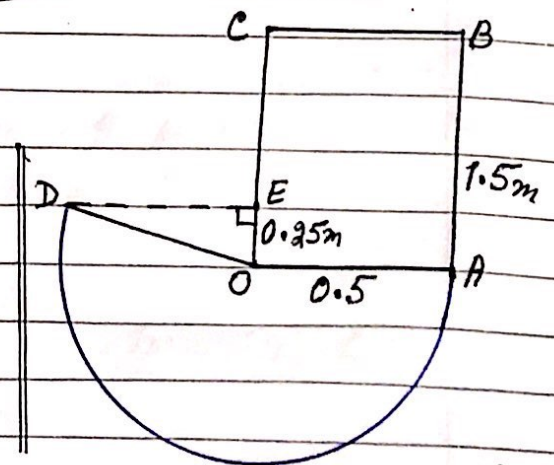 C B
1.5m
D E
0.25m
O 0.5 A